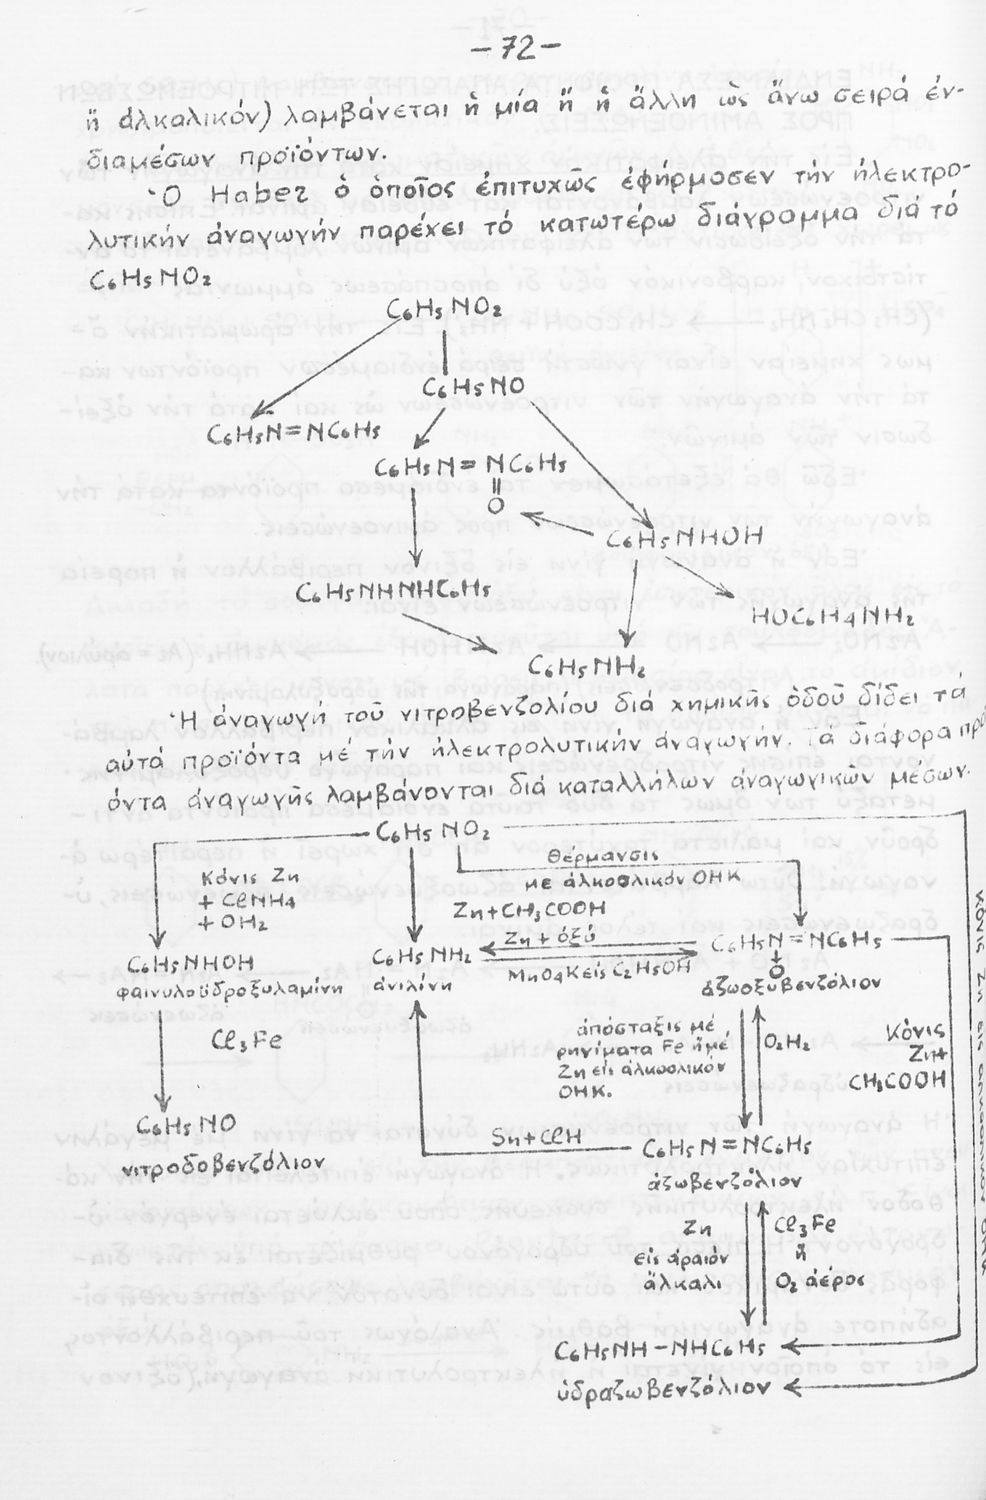 -72-
ἤ ἀλκαλικόν) λαμβάνεται ἡ μία ἤ ἡ ἄλλη ὡς ἄνω σειρά ἐν-
διαμέσων προϊόντων.
Ὁ Haber ὁ ὁποῖος ἐπιτυχῶς ἐφήρμοσεν τήν ἠλεκτρο-
λυτικήν ἀναγωγήν παρέχει τό κατωτέρω διάγραμμα διά τό
C6H5NO2
C6H5NO2
C6H5NO
C6H5N=NC6H5
C6H5N=NC6H5
O
C6H5NHOH
C6H5NHNHC6H5
HOC6H4NH2
C6H5NH2
Ἡ ἀναγωγή τοῦ νιτροβενζολίου διά χημικῆς ὁδοῦ δίδει τά
αὐτά προϊόντα μέ τήν ἠλεκτρολυτικήν ἀναγωγήν. Τά διάφορα προ
όντα ἀναγωγῆς λαμβάνονται διά καταλλήλων ἀναγωγικῶν μέσων.
C6H5NO2
Θέρμανσις
με ἀλκοολικόν OHK
Κόνις Zn
+ ClNH4
+ OH2
Zn+CH3COOH
Zn+ὀξύ
MnO4K εἰς C2H5OH
C6H5NHOH
φαινυλοϋδροξυλαμίνη
C6H5NH2
ἀνιλίνη
C6H5N=NC6H5
O
ἀζωοξυβενζόλιον
Cl3Fe
ἀπόσταξις μέ
ρηνίματα Fe ἤ μέ
Zn εἰς ἀλκοολικόν
OHK.
O2H2
Κόνις
Zn+
CH3COOH
C6H5NO
νιτροδοβενζόλιον
Sn+ClH
C6H5N=NC6H5
ἀζωβενζόλιον
Zn
εἰς ἀραιόν
ἄλκαλι
Cl3Fe
ἤ
O2 ἀέρος
C6H5NH-NHC6H5
ὑδραζωβενζόλιον
Κόνις Zn